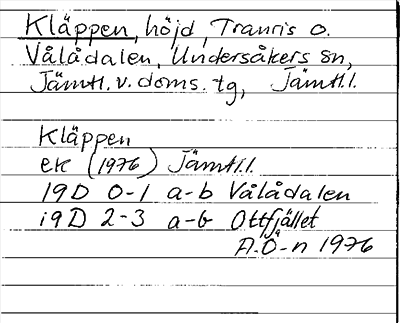 Kläppen, höjd, Tranris o.
Vålådalen, Undersåkers sn,
Jämtl. v. doms. tg, Jämtl.l.
Kläppen
ek (1976) Jämtl.l.
19D 0-1 a-b Vålådalen
19D 2-3 a-b Ottfjället
A.Ö-n 1976